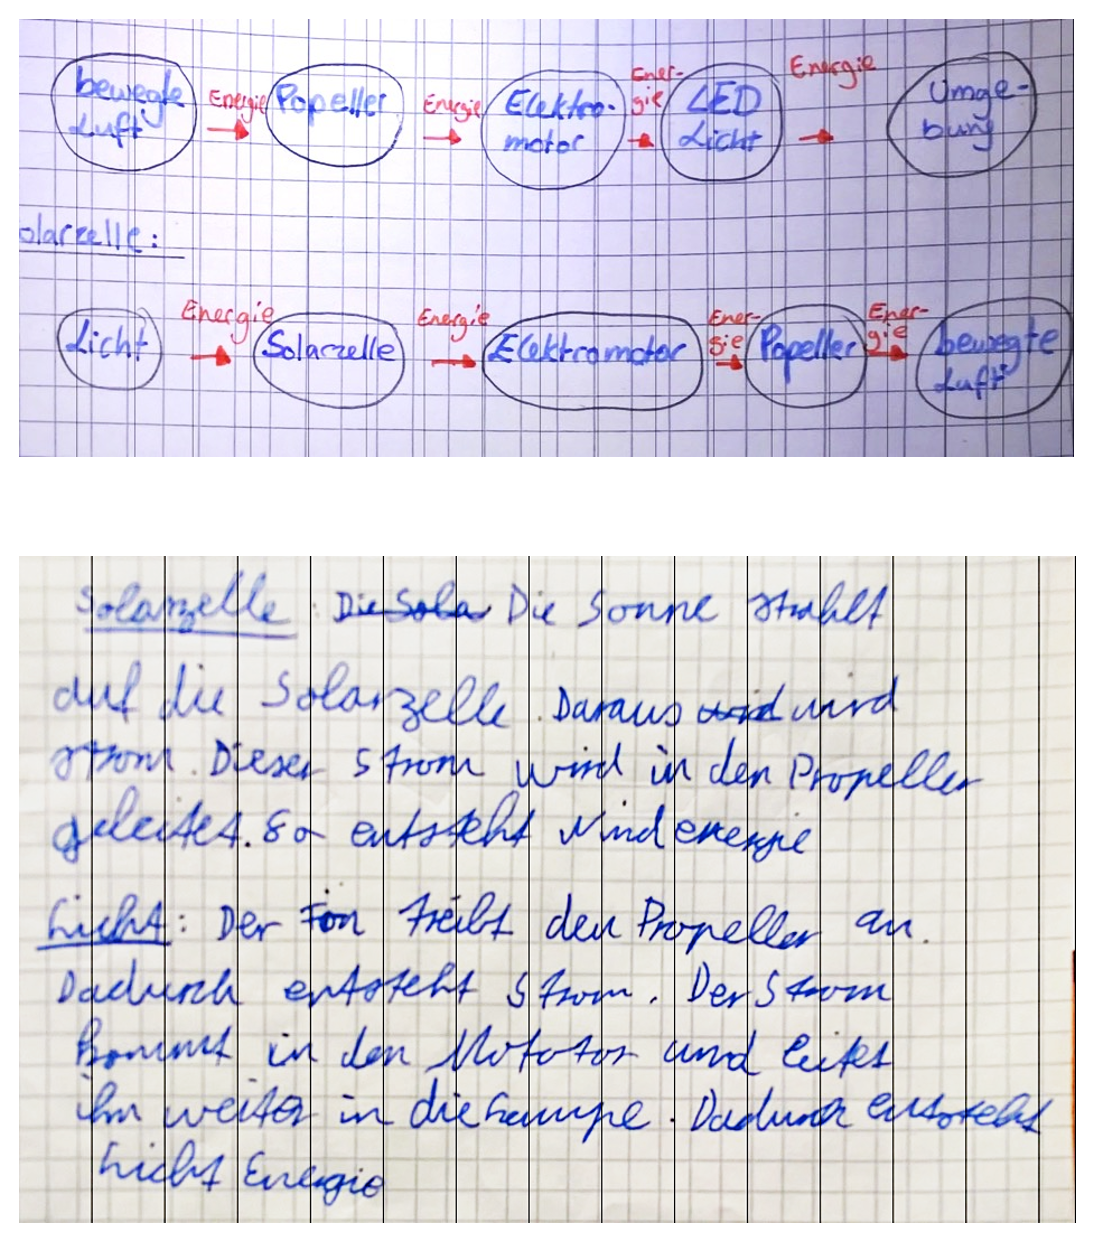 bewegte Energie Popeller Energie Elektro- Ener- LED Energie Umge-
Luft motor gie Licht bung
olarzelle:
Licht Energie Solarzelle Energie Elektromotor Ener- Popeller Ener- bewegte
gie gie Luft
Solarzelle: Die Sola Die Sonne strahlt
auf die Solarzelle. Daraus wird wird
strom. Dieser Strom wird in den Propeller
geleitet. So entsteht Windenergie
Licht: Der Fön treibt den Propeller an.
Dadurch entsteht Strom. Der Strom
kommt in den Mototor und leitet
ihn weiter in die Lampe. Dadurch entsteht
Licht Energie